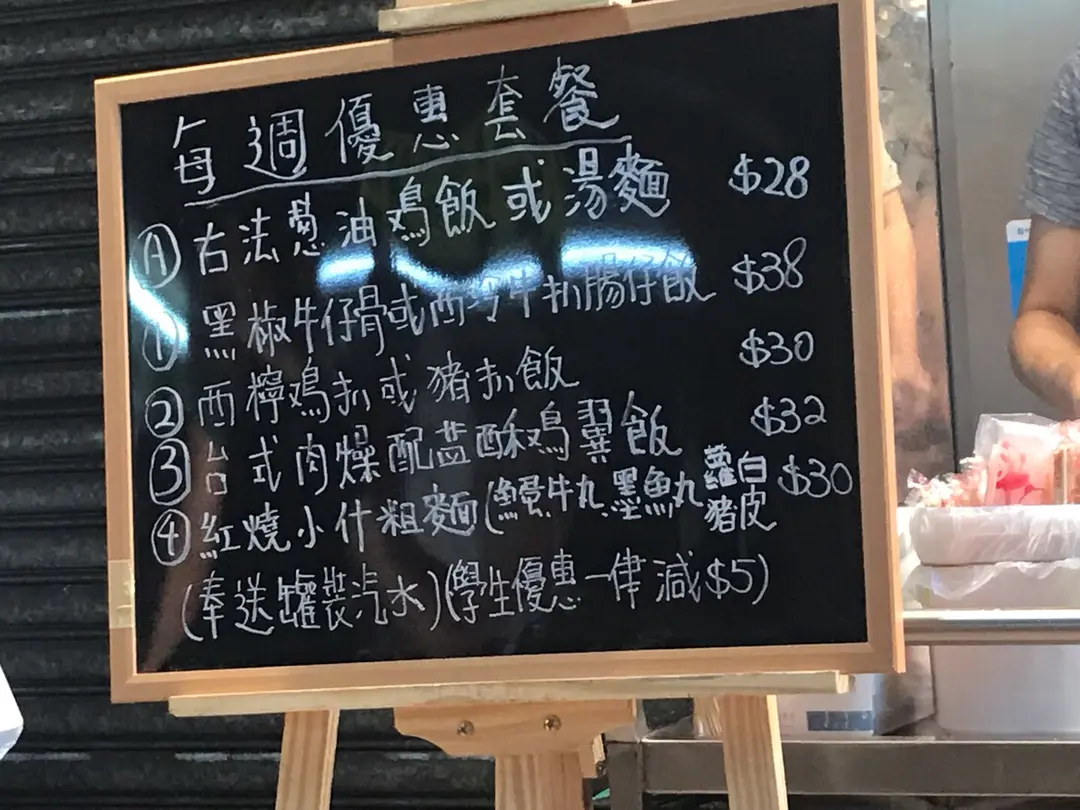 每週優惠套餐
Ⓐ 古法葱油鸡飯或湯麵 $28
① 黑椒牛仔骨或西冷牛扒腸仔飯 $38
② 西檸鸡扒或豬扒飯 $30
③ 台式肉燥配蓝酥鸡翼飯 $32
④ 紅燒小什粗麵(鱔牛丸.墨魚丸 蘿白 豬皮 $30
(奉送罐裝汽水)(學生優惠一律減$5)